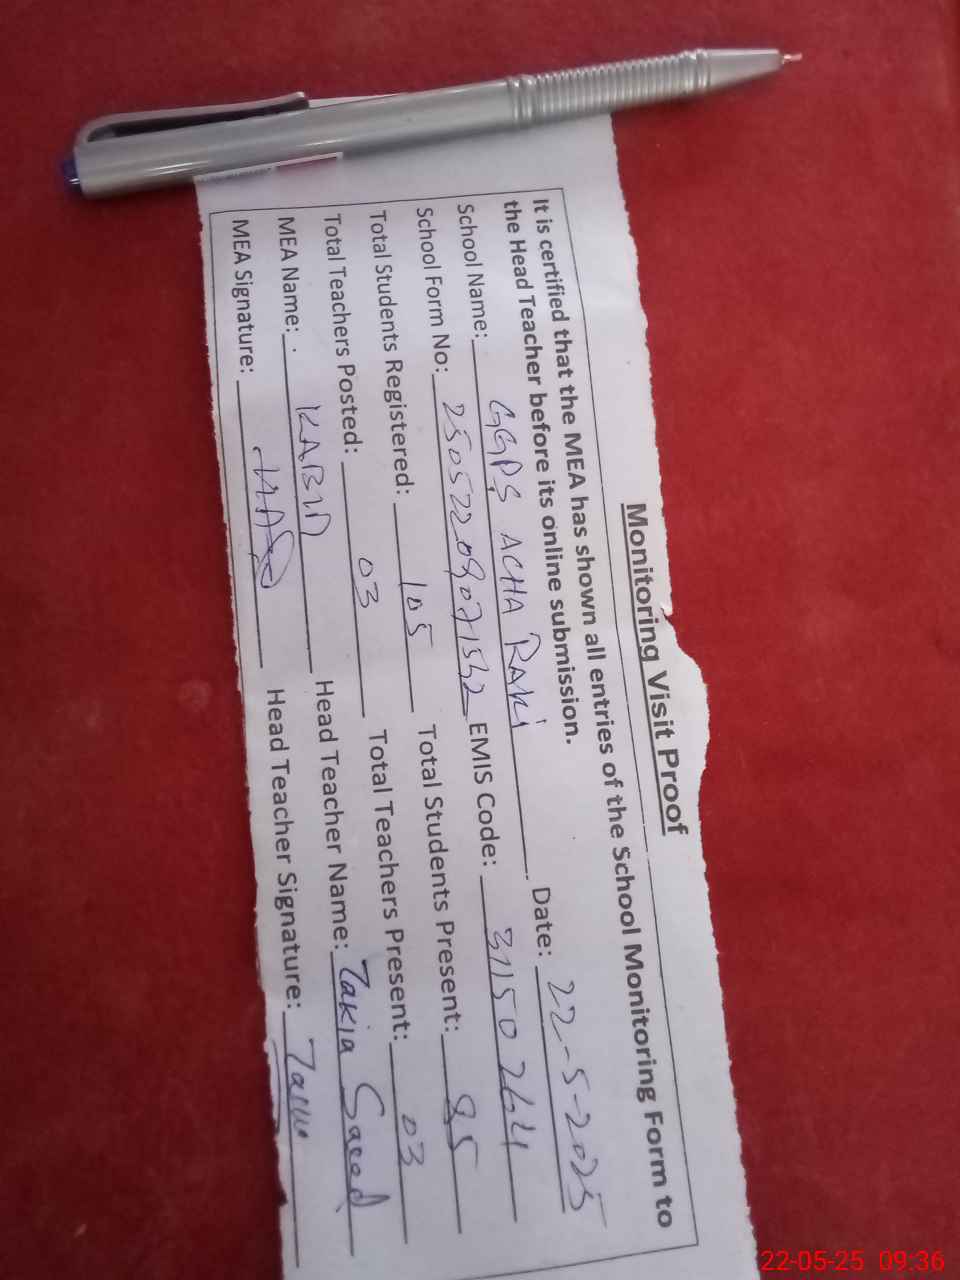 Monitoring Visit Proof
It is certified that the MEA has shown all entries of the School Monitoring Form to
the Head Teacher before its online submission.
School Name: GGPS ACHA RAKI Date: 22-5-2025
School Form No: EMIS Code:
Total Students Registered: 105 Total Students Present:
Total Teachers Posted: 03 Total Teachers Present: 03
MEA Name: KABIR Head Teacher Name: Zakia Saeed
MEA Signature: Head Teacher Signature:
22-05-25 09:36